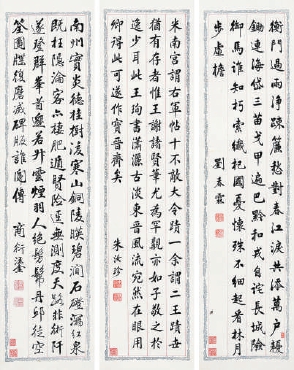 衡門過雨淨疎簾愁對春江淚共添萬戶耰
鋤連海岱三苗戈甲遍巴黔和戎自詫長城險
御馬誰知朽索纖杞國憂懷殊不細起看林月
步虛檐 劉春霖
米南宮謂右軍帖十不敵大令蹟一余謂二王蹟世
猶有存者惟王謝諸賢筆尤為罕覯亦如子敬之於
逸少耳此王珣書瀟灑古淡東晉風流宛然在眼用
卿得此可遂作寶晉齋矣 朱汝珍
南州實炎德桂樹淩寒山銅陵映碧澗石磴瀉紅泉
既枉隱淪客亦棲肥遯賢險逕無測度天路非術阡
遂登群峯首邈若升雲煙羽人絕髣髴丹丘徒空
筌圖牒復磨滅碑版誰聞傳 商衍鎏